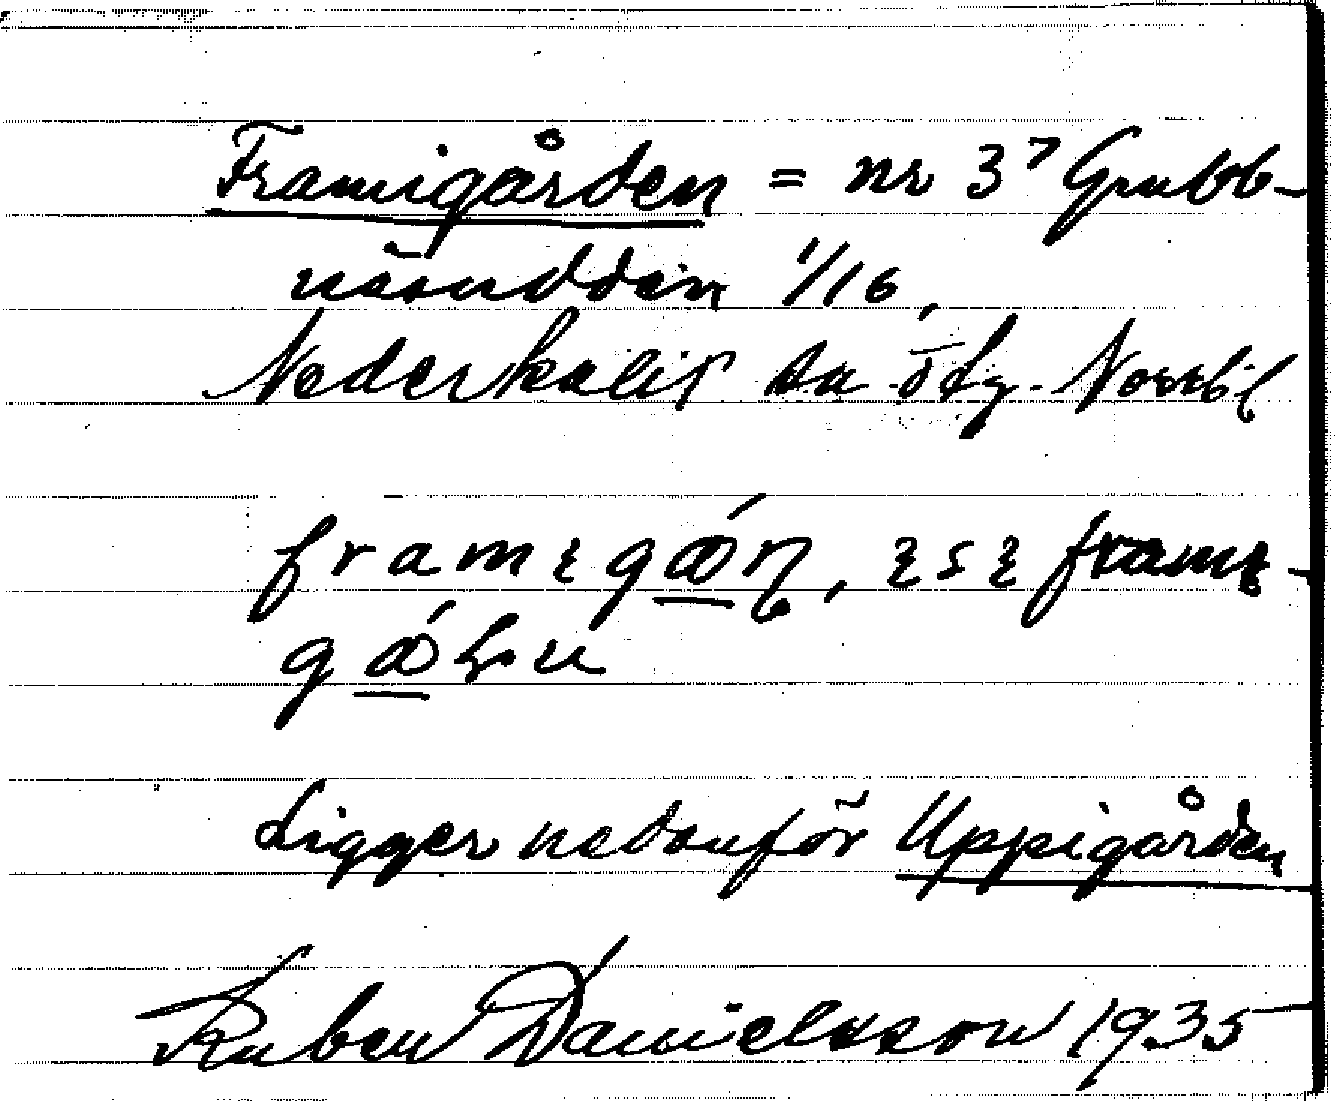 Framigården = nr 3⁷ Grubb-
näsudden 1/16,
Nederkalix sn ö dg. Norrb. l
Ligger nedanför Uppigården
Ruben Danielsson 1935